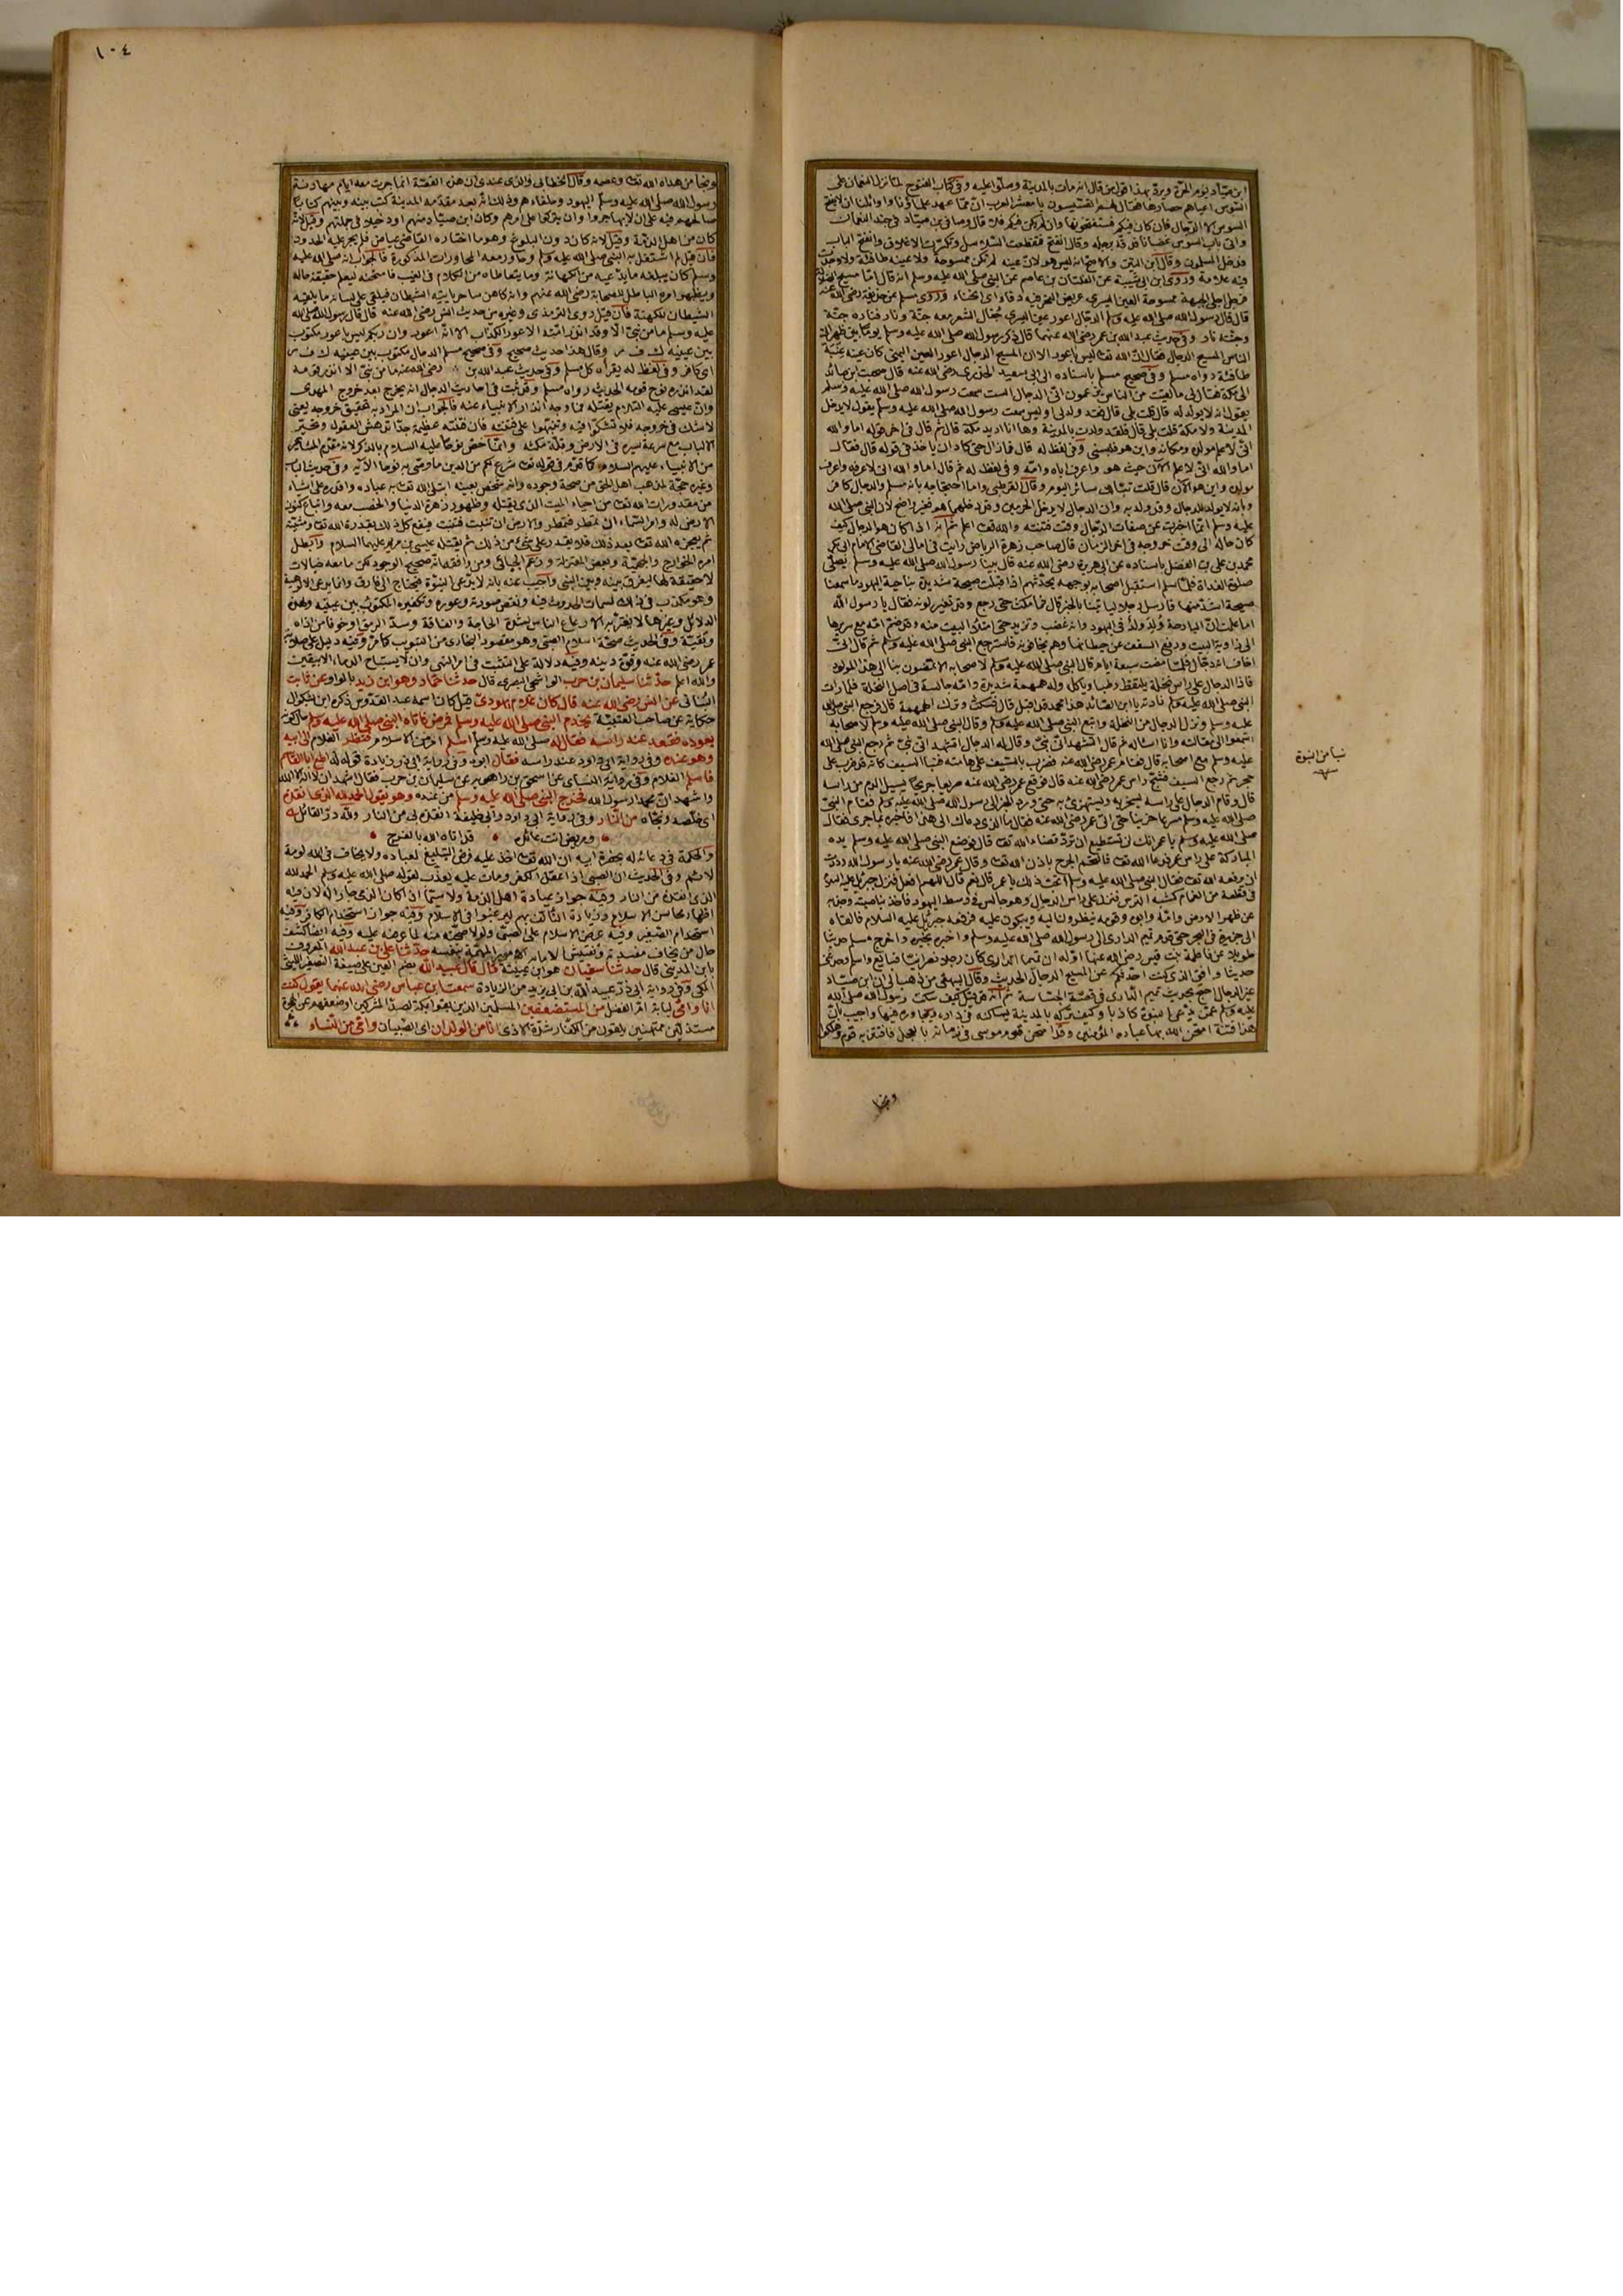 ابن صياد يوم الحرة ويرد بهذا قول من قال انه مات بالمدينة وصلوا عليه وفى كتاب الفتوح لما نزل النعمان على
السوس اعياهم حصارها فقال لهم القسيسون يا معشر العرب ان مما عهد علماؤنا واوائلنا ان لا يفتح
السوس الا الدجال فان كان فيكم فستفتحونها وان لم يكن فيكم فلا قال وصافى بن صياد فى جند النعمان
واتى باب السوس غضبانا فدقه برجله وقال انفتح فتقطعت السلاسل وتكسرت الاغلاق وانفتح الباب
فدخل المسلمون وقال ابن التين والاصح انه ليس هو لان عينه لم تكن ممسوحة ولا عينه طافئة ولا وجدت
فيه علامة وروى ابن ابى شيبة عن الفلتان بن عاصم عن النبى صلى الله عليه وسلم انه قال اما مسيح الضلالة
فرجل اجلى الجبهة ممسوح العين اليسرى عريض النحر فيه دفا اى انحناء وروى مسلم عن حذيفة رضى الله عنه
قال قال رسول الله صلى الله عليه وسلم الدجال اعور عين اليسرى جفال الشعر معه جنة ونار فناره جنة
وجنته نار وفى حديث عبد الله بن عمر رضى الله عنهما قال ذكر رسول الله صلى الله عليه وسلم يوما بين ظهرانى
الناس المسيح الدجال فقال ان الله تعالى ليس باعور الا ان المسيح الدجال اعور العين اليمنى كان عينه عنبة
طافئة رواه مسلم وفى صحيح مسلم باسناده الى ابى سعيد الخدرى رضى الله عنه قال صحبت ابن صائد
الى مكة فقال لى ما لقيت من الناس يزعمون انى الدجال الست سمعت رسول الله صلى الله عليه وسلم
يقول انه لا يولد له قال قلت بلى قال فقد ولد لى اوليس سمعت رسول الله صلى الله عليه وسلم يقول لا يدخل
المدينة ولا مكة قلت بلى قال فلقد ولدت بالمدينة وها انا اريد مكة قال ثم قال فى اخر قوله اما والله
انى لاعلم مولده ومكانه واين هو فلبسنى وفى لفظ له قال فما زال حتى كاد ان ياخذ فى قوله قال فقال
اما والله انى لاعلم الآن حيث هو واعرف اباه وامه وفى لفظ له ثم قال اما والله انى لاعرفه واعرف
مولده واين هو الآن قال قلت تبا لك سائر اليوم وقال القرطبى واما احتجاجه بانه مسلم والدجال كافر
وبانه لا يولد للدجال وقد ولد له وان الدجال لا يدخل الحرمين وقد دخلهما هو فغير واضح لان النبى صلى الله
عليه وسلم انما اخبر عن صفات الدجال وقت فتنته والله تعالى اعلم ثم انه اذا كان هو الدجال كيف
كان حاله الى وقت خروجه فى اخر الزمان قال صاحب زهرة الرياض رايت فى امالى القاضى الامام ابى بكر
محمد بن على بن الفضل باسناده عن ابى هريرة رضى الله عنه قال بينا رسول الله صلى الله عليه وسلم يصلى
صلوة الغداة فلما سلم استقبل اصحابه بوجهه يحدثهم اذ اقبلت صيحة شديدة بناحية اليهود ما سمعنا
صيحة اشد منها فارسل رجلا لياتينا بالخبر قال فما مكث حتى رجع وقد تغير لونه فقال يا رسول الله
اما علمت ان البارحة ولد ولد فى اليهود وانه غضب وتزيد حتى امتلأ البيت منه وقد ضم امه مع سريرها
الى زاوية البيت ورفع السقف عن حيطانها وهم يخافونه فاسترجع النبى صلى الله عليه وسلم ثم قال انى
اخاف انه دجال فلما مضت سبعة ايام قال النبى صلى الله عليه وسلم لاصحابه الا تمضون بنا الى هذا المولود
فاذا الدجال على راس نخلة يلتقط رطبا وياكل وله همهمة شديدة وامه جالسة فى اصل النخلة فلما رات
النبى صلى الله عليه وسلم نادته يا ابن الصائد هذا محمد قد اقبل قال فسكت وترك الهمهمة قال فرجع النبى صلى الله
عليه وسلم ونزل الدجال من النخلة واتبع النبى صلى الله عليه وسلم وقال النبى صلى الله عليه وسلم لاصحابه
استمعوا الى مقالته وانا اساله ثم قال اتشهد انى نبى وقال له الدجال اتشهد انى نبى ثم رجع النبى صلى الله
عليه وسلم مع اصحابه قال فقام عمر رضى الله عنه فضرب بالسيف على هامته فنبا السيف كانه قد ضرب على
حجر ثم رجع السيف فشج راس عمر رضى الله عنه قال فوقع عمر رضى الله عنه صريعا جريحا يسيل الدم من راسه
قال وقام الدجال على راسه يسخر به ويستهزئ به حتى ورد الخبر الى رسول الله صلى الله عليه وسلم فقام النبى
صلى الله عليه وسلم مسرعا حزينا حتى اتى عمر رضى الله عنه فقال ما الذى دعاك الى هذا فاخبره بما جرى فقال
صلى الله عليه وسلم يا عمر انك لن تستطيع ان ترد قضاء الله تعالى قال فوضع النبى صلى الله عليه وسلم يده
المباركة على راس عمر فدعا الله تعالى فالتحم الجرح باذن الله تعالى وقال عمر رضى الله عنه يا رسول الله وددت
ان يرفعه الله تعالى فقال النبى صلى الله عليه وسلم اتحب ذلك يا عمر قال نعم قال اللهم افعل فنزل جبرئل عليه السلام
فى قطعة من الغمام كشبه الترس فنزل على راس الدجال وهو جالس فى وسط اليهود فاخذ بناصيته وجذبه
عن ظهر الارض وامه وابوه وقومه ينظرون اليه ويبكون عليه فرفعه جبرئل عليه السلام فالقاه
الى جزيرة فى البحر حتى قدم تميم الدارى الى رسول الله صلى الله عليه وسلم واخبره بخبره واخرج مسلم حديثا
طويلا عن فاطمة بنت قيس رضى الله عنها اوله ان تميما الدارى كان رجلا نصرانيا فبايع واسلم وحدثنى
حديثا وافق الذى كنت احدثكم عن المسيح الدجال الحديث وقال البيهقى من ذهب الى ان ابن صياد
غير الدجال احتج بحديث تميم الدارى فى قصة الجساسة ثم انه قد قيل كيف سكت رسول الله صلى الله
عليه وسلم عمن يدعى النبوة كاذبا وكيف تركه بالمدينة يساكنه فى داره ويجاوره فيها واجيب بان
هذا فتنة امتحن الله بها عباده المؤمنين وقد امتحن قوم موسى فى زمانه بالعجل فافتتن به قوم وهلكوا
ونجا
١٠٤
ونجا من هداه الله تعالى وعصمه وقال الخطابى والذى عندى ان هذه القصة انما جرت معه ايام مهادنة
رسول الله صلى الله عليه وسلم اليهود وحلفاءهم وذلك انه بعد مقدمه المدينة كتب بينه وبينهم كتابا
صالحهم فيه على ان لا يهاجروا وان يتركوا على امرهم وكان ابن صياد منهم او دخيلا فى جملتهم وقيل لانه
كان من اهل الذمة وقيل لانه كان دون البلوغ وهو ما اختاره القاضى عياض فلم يجر عليه الحدود
فان قيل لم اشتغل به النبى صلى الله عليه وسلم وحاور معه المحاورات المذكورة فالجواب انه صلى الله عليه
وسلم كان يبلغه ما يدعيه من الكهانة وما يتعاطاه من الكلام فى الغيب فامتحنه ليعلم حقيقة حاله
ويظهر امره الباطل للصحابة رضى الله عنهم وانه كاهن ساحر ياتيه الشيطان فيلقى على لسانه ما يلقيه
الشيطان للكهنة فان قيل روى الترمذى وغيره من حديث انس رضى الله عنه قال قال رسول الله صلى الله
عليه وسلم ما من نبى الا وقد انذر امته الاعور الكذاب الا انه اعور وان ربكم ليس باعور مكتوب
بين عينيه ك ف ر وقال هذا حديث صحيح وفى صحيح مسلم الدجال مكتوب بين عينيه ك ف ر
اى كافر وفى لفظ له يقرأه كل مسلم وفى حديث عبد الله بن رضى الله عنهما ما من نبى الا انذر قومه
لقد انذره نوح قومه الحديث رواه مسلم وقد ثبت فى احاديث الدجال انه يخرج بعد خروج المهدى
وان عيسى عليه السلام يقتله فما وجه انذار الانبياء عنه فالجواب ان المراد به تحقيق خروجه يعنى
لا شك فى خروجه فلا تشكوا فيه وتنبهوا على فتنته فان فتنته عظيمة جدا تدهش العقول وتحير
الالباب مع سرعة سيره فى الارض وقلة مكثه وانما خص نوحا عليه السلام بالذكر لانه مقدم المشاهير
من الانبياء عليهم السلام كما قدم فى قوله تعالى شرع لكم من الدين ما وصى به نوحا الآية وفى حديث الباب
وغيره حجة لمذهب اهل الحق من صحة وجوده وانه شخص بعينه ابتلى الله تعالى به عباده واقدره على اشياء
من مقدورات الله تعالى من احياء الميت الذى يقتله وظهور زهرة الدنيا والخصب معه واتباع كنوز
الارض له وامر السماء ان تمطر فتمطر والارض ان تنبت فتنبت فيقع كل ذلك بقدرة الله تعالى ومشيئته
ثم يعجزه الله تعالى بعد ذلك فلا يقدر على شئ من ذلك ثم يقتله عيسى بن مريم عليهما السلام وابطل
امره الخوارج والجهمية وبعض المعتزلة وزعم الجبائى ومن وافقه انه صحيح الوجود لكن ما معه خيالات
لا حقيقة لها ليفرق بينه وبين النبى واجيب عنه بانه لا يدعى النبوة فيحتاج الى فارق وانما يدعى الالوهية
وهو مكذب فى ذلك لسمات الحدوث فيه ونقص صورته وعوره وتكفيره المكتوب بين عينيه ولهذه
الدلائل وغيرها لا يغتر به الا رعاع الناس لشدة الحاجة والفاقة وسد الرمق او خوفا من اذاه
وتقية وفى الحديث صحة اسلام الصبى وهو مقصود البخارى من التبويب كما مر وفيه دليل على صلابة
عمر رضى الله عنه وقوة دينه وفيه دلالة على التثبت فى امر النهى وان لا يستباح الدماء الا بيقين
والله اعلم حدثنا سليمان بن حرب الواشحى البصرى قال حدثنا حماد وهو ابن زيد بالواو عن ثابت
البنانى عن انس رضى الله عنه قال كان غلام يهودى قيل كان اسمه عبد القدوس ذكره ابن بشكوال
حكاية عن صاحب العتبية يخدم النبى صلى الله عليه وسلم فمرض فاتاه النبى صلى الله عليه وسلم حال كونه
يعوده فقعد عند راسه فقال له صلى الله عليه وسلم اسلم امر من الاسلام فنظر الغلام الى ابيه
وهو عنده وفى رواية ابى داود عند راسه فقال ابوه وفى رواية ابى ذر زيادة قوله له اطع ابا القاسم
فاسلم الغلام وفى رواية النسائى عن اسحق بن راهويه عن سليمان بن حرب فقال اشهد ان لا اله الا الله
واشهد ان محمدا رسول الله فخرج النبى صلى الله عليه وسلم من عنده وهو يقول الحمد لله الذى انقذه
اى خلصه ونجاه من النار وفى رواية ابى داود وابى خليفة انقذه بى من النار ولله در القائل
ومريض انت عائده قد اتاه الله بالفرج
والحكمة فى دعائه له بحضرة ابيه ان الله تعالى اخذ عليه فرض التبليغ لعباده ولا يخاف فى الله لومة
لائم وفى الحديث ان الصبى اذا عقل الكفر ومات عليه يعذب لقوله صلى الله عليه وسلم الحمد لله
الذى انقذه من النار وفيه جواز عيادة اهل الذمة ولا سيما اذا كان الذمى جارا له لان فيه
اظهار محاسن الاسلام وزيادة التآلف بهم ليرغبوا فى الاسلام وفيه جواز استخدام الكافر وفيه
استخدام الصغير وفيه عرض الاسلام على الصبى ولولا صحته منه لما عرضه عليه وفيه ايضا كشف
حال من يخاف مفسدته وتفتيش الامام الامور المهمة بنفسه حدثنا على بن عبد الله المعروف
بابن المدينى قال حدثنا سفيان هو ابن عيينة قال قال عبيد الله بضم العين على صيغة التصغير الليثى
المكى وفى رواية ابى ذر عبيد الله بن ابى يزيد من الزيادة سمعت ابن عباس رضى الله عنهما يقول كنت
انا وامى لبابة ام الفضل من المستضعفين المسلمين الذين بقوا بمكة لصد المشركين او ضعفهم عن الهجرة
مستذلين ممتهنين يلقون من الكفار شدة الاذى انا من الولدان اى الصبيان وامى من النساء